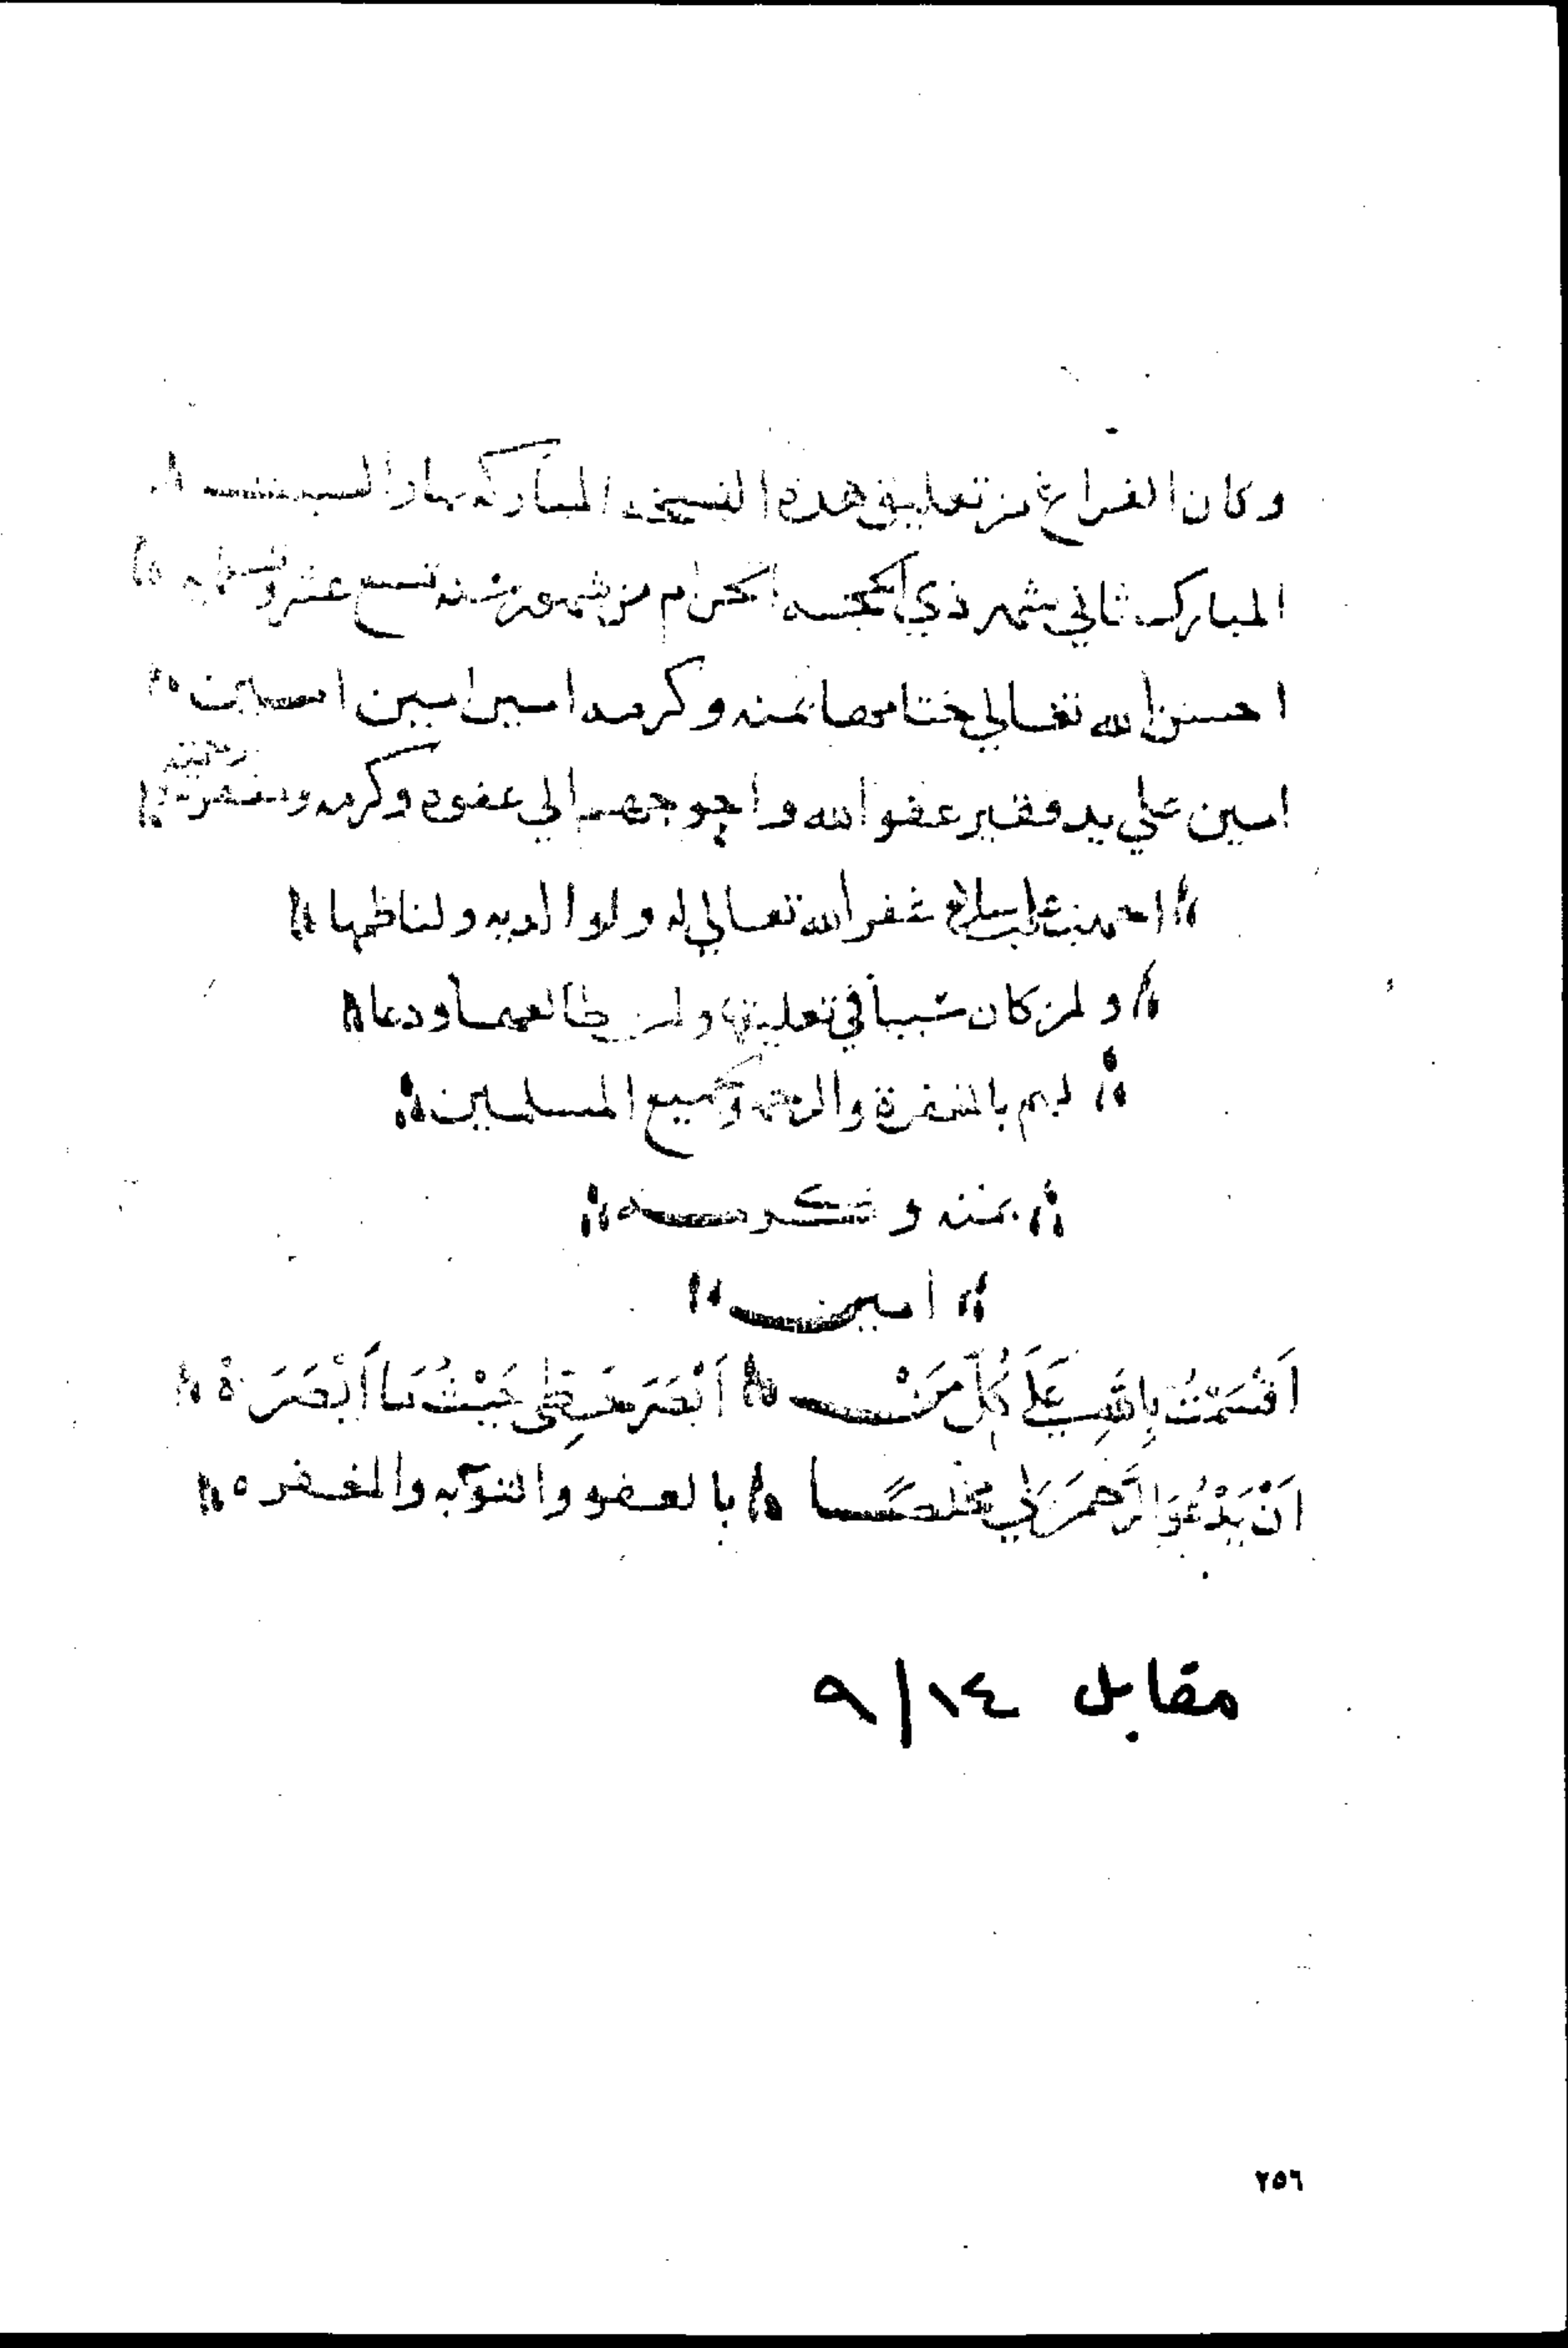 وكان الفراغ من تعليق هذه النسخه المباركه نهار السبت
المبارك ثاني شهر ذي الحجه الحرام من شهور سنه تسع عشر
احسن الله تعالي ختامها بمنه وكرمه امين امين امين
امين علي يد فقير عفو الله واحوجهم الي عفوه وكرمه
احمد غفر الله تعالي له ولوالديه ولناظمها
ولمن كان سببا في تعليقها ولمن طالعها ودعا
لهم بالمغفرة والرحمه ولجميع المسلمين
بمنه وكرمه
امين
اَقْسَمْتُ بِاللهِ عَلَى كُلِّ مَنْ اَبْصَرَ خطى حَيْثُ مَا اَبْصَرَهْ
اَنْ يَدْعُوَ الرَّحمَنَ لي مخلصًا بالعفو والتوبه والمغفره
مقابل ٩/١٤
٢٥٦